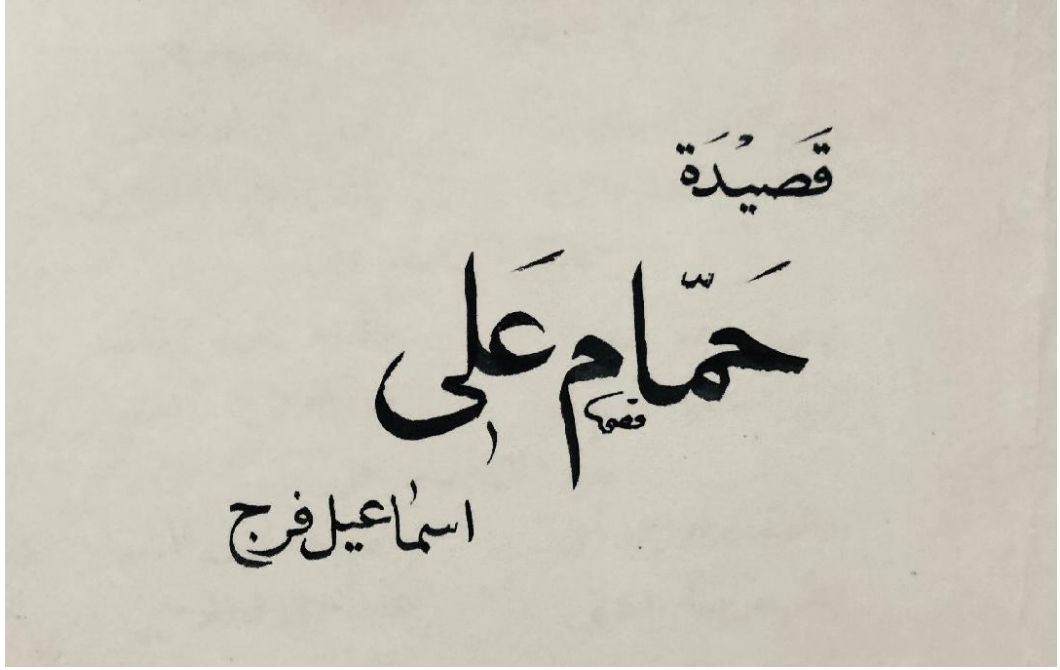 قَصِيْدَة
حَمّام عَلى
اسماعيل فرج